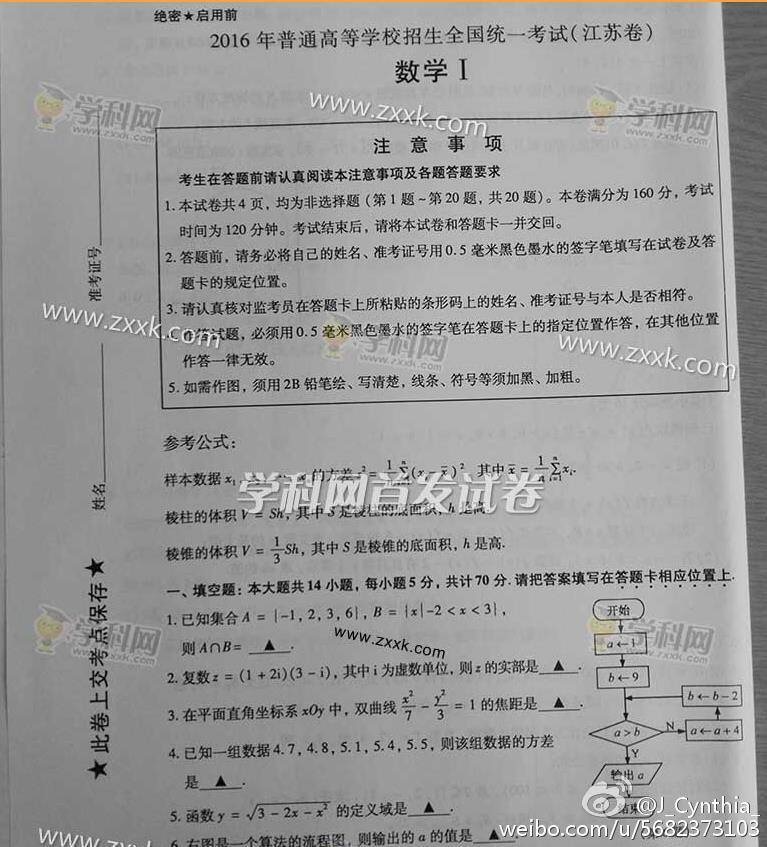 绝密★启用前
2016 年普通高等学校招生全国统一考试(江苏卷)
数学 I
注 意 事 项
考生在答题前请认真阅读本注意事项及各题答题要求
1. 本试卷共 4 页, 均为非选择题 (第 1 题~第 20 题, 共 20 题)。本卷满分为 160 分, 考试
时间为 120 分钟。考试结束后, 请将本试卷和答题卡一并交回。
2. 答题前, 请务必将自己的姓名、准考证号用 0.5 毫米黑色墨水的签字笔填写在试卷及答
题卡的规定位置。
3. 请认真核对监考员在答题卡上所粘贴的条形码上的姓名、准考证号与本人是否相符。
答试题, 必须用 0.5 毫米黑色墨水的签字笔在答题卡上的指定位置作答, 在其他位置
作答一律无效。
5. 如需作图, 须用 2B 铅笔绘、写清楚, 线条、符号等须加黑、加粗。
参考公式:
样本数据 x₁ 的方差 s² = 1/n ∑ⁿᵢ₌₁ (xᵢ - x̄)², 其中 x̄ = 1/n ∑ⁿᵢ₌₁ xᵢ.
棱柱的体积 V = Sh, 其中 S 是棱柱的底面积, h 是高.
棱锥的体积 V = 1/3 Sh, 其中 S 是棱锥的底面积, h 是高.
一、填空题: 本大题共 14 小题, 每小题 5 分, 共计 70 分. 请把答案填写在答题卡相应位置上.
1. 已知集合 A = {-1, 2, 3, 6}, B = {x|-2 < x < 3},
则 A∩B= ▲ .
2. 复数 z = (1 + 2i)(3 - i), 其中 i 为虚数单位, 则 z 的实部是 ▲ .
3. 在平面直角坐标系 xOy 中, 双曲线 x²/7 - y²/3 = 1 的焦距是 ▲ .
4. 已知一组数据 4.7, 4.8, 5.1, 5.4, 5.5, 则该组数据的方差
是 ▲ .
5. 函数 y = √(3 - 2x - x²) 的定义域是 ▲ .
6. 右图是一个算法的流程图, 则输出的 a 的值是 ▲
开始
a←1
b←9
b←b-2
a>b
N
a←a+4
Y
输出 a
结束
准考证号
姓名
★此卷上交考点保存★
学科网
www.zxxk.com
学科网
www.zxxk.com
学科网
www.zxxk.com
学科网首发试卷
学科网
www.zxxk.com
学科网
www.zxxk.com
@J_Cynthia_
weibo.com/u/5682373103